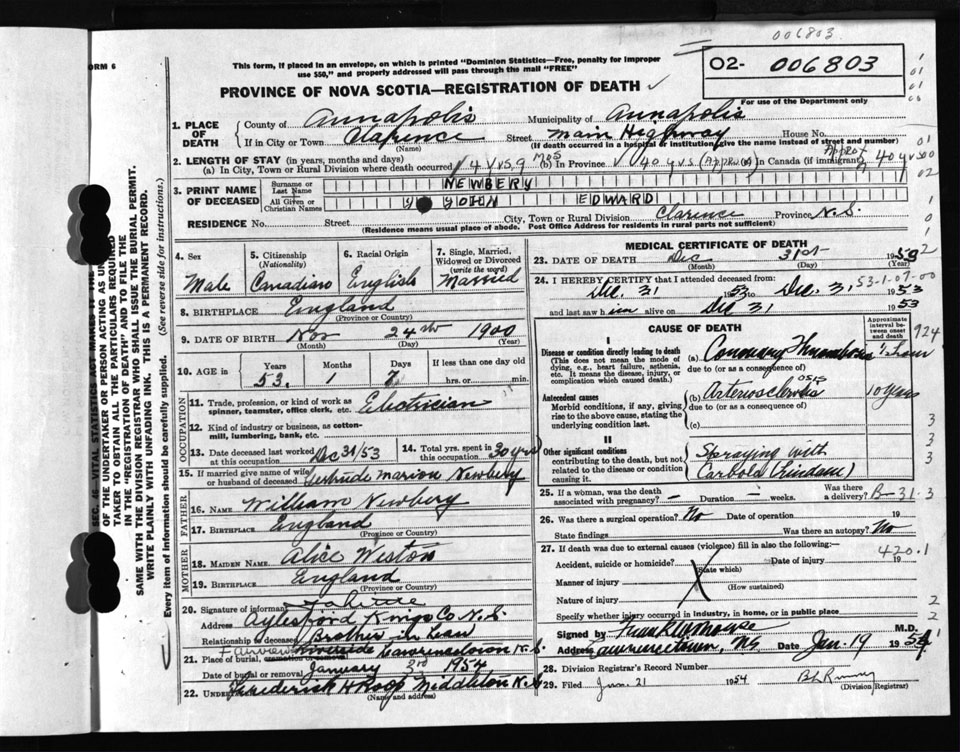 006803
ORM 6
This form, if placed in an envelope, on which is printed "Dominion Statistics—Free, penalty for improper
use $50," and properly addressed will pass through the mail "FREE"
O2- 006803
PROVINCE OF NOVA SCOTIA—REGISTRATION OF DEATH ✓
For use of the Department only
1. PLACE OF DEATH
County of Annapolis Municipality of Annapolis
If in City or Town Clarence Street Main Highway House No.
(Name) (If death occurred in a hospital or institution give the name instead of street and number)
2. LENGTH OF STAY (in years, months and days)
(a) In City, Town or Rural Division where death occurred 4 yrs. 9 mos (b) In Province 40 yrs (Approx) (c) In Canada (if immigrant) Approx 40 yrs
3. PRINT NAME OF DECEASED
Surname or Last Name NEWBERY
All Given or Christian Names JOHN EDWARD
RESIDENCE No. Street City, Town or Rural Division Clarence Province N.S.
(Residence means usual place of abode. Post Office Address for residents in rural parts not sufficient)
4. Sex Male
5. Citizenship (Nationality) Canadian
6. Racial Origin English
7. Single, Married, Widowed or Divorced (write the word) Married
8. BIRTHPLACE England
(Province or Country)
9. DATE OF BIRTH Nov 24th 1900
(Month) (Day) (Year)
10. AGE in Years Months Days If less than one day old
53. 1 7 hrs. or min.
OCCUPATION
11. Trade, profession, or kind of work as spinner, teamster, office clerk, etc. Electrician
12. Kind of industry or business, as cotton-mill, lumbering, bank, etc.
13. Date deceased last worked at this occupation Dec 31/53
14. Total yrs. spent in this occupation 30 yrs
15. If married give name of wife or husband of deceased Gertrude Marion Newbery
FATHER
16. NAME William Newbery
17. BIRTHPLACE England
(Province or Country)
MOTHER
18. MAIDEN NAME Alice Weston
19. BIRTHPLACE England
(Province or Country)
20. Signature of informant
Address Aylesford Kings Co N.S.
Relationship to deceased Brother in Law
21. Place of burial, cremation or removal Fairview Lawrencetown N.S.
Date of burial or removal January 2nd 1954
22. Undertaker Frederick H Roop Middleton N.S.
(Name and address)
MEDICAL CERTIFICATE OF DEATH
23. DATE OF DEATH Dec 31st 1953
(Month) (Day) (Year)
24. I HEREBY CERTIFY that I attended deceased from:
Dec. 31 1953 to Dec. 31 1953
53-1-07-00
and last saw him alive on Dec 31 1953
CAUSE OF DEATH
Approximate interval between onset and death
924
I
Disease or condition directly leading to death
(This does not mean the mode of dying, e.g., heart failure, asthenia, etc. It means the disease, injury, or complication which caused death.)
(a) Coronary Thrombosis ½ hour
due to (or as a consequence of)
Antecedent causes
Morbid conditions, if any, giving rise to the above cause, stating the underlying condition last.
(b) Arteriosclerosis 10 years
due to (or as a consequence of)
(c)
II
Other significant conditions
contributing to the death, but not related to the disease or condition causing it.
Spraying with
Carbola (Lindane)
25. If a woman, was the death associated with pregnancy? — Duration — weeks. Was there a delivery?
B-31.3
26. Was there a surgical operation? No Date of operation 19
State findings Was there an autopsy? No
27. If death was due to external causes (violence) fill in also the following:—
420.1
Accident, suicide or homicide? Date of injury 19
(State which)
Manner of injury
(How sustained)
Nature of injury
Specify whether injury occurred in industry, in home, or in public place
Signed by M.D.
Address Lawrencetown, NS Date Jan. 19 1954
28. Division Registrar's Record Number
29. Filed Jan. 21 1954
(Division Registrar)
SEC. 46. VITAL STATISTICS ACT MAKES IT THE
OF THE UNDERTAKER OR PERSON ACTING AS UN
TAKER TO OBTAIN ALL THE PARTICULARS REQUIRED
IN THE "REGISTRATION OF DEATH" AND TO FILE THE
SAME WITH THE DIVISION REGISTRAR WHO SHALL ISSUE THE BURIAL PERMIT.
WRITE PLAINLY WITH UNFADING INK. THIS IS A PERMANENT RECORD.
Every item of information should be carefully supplied. (See reverse side for instructions.)